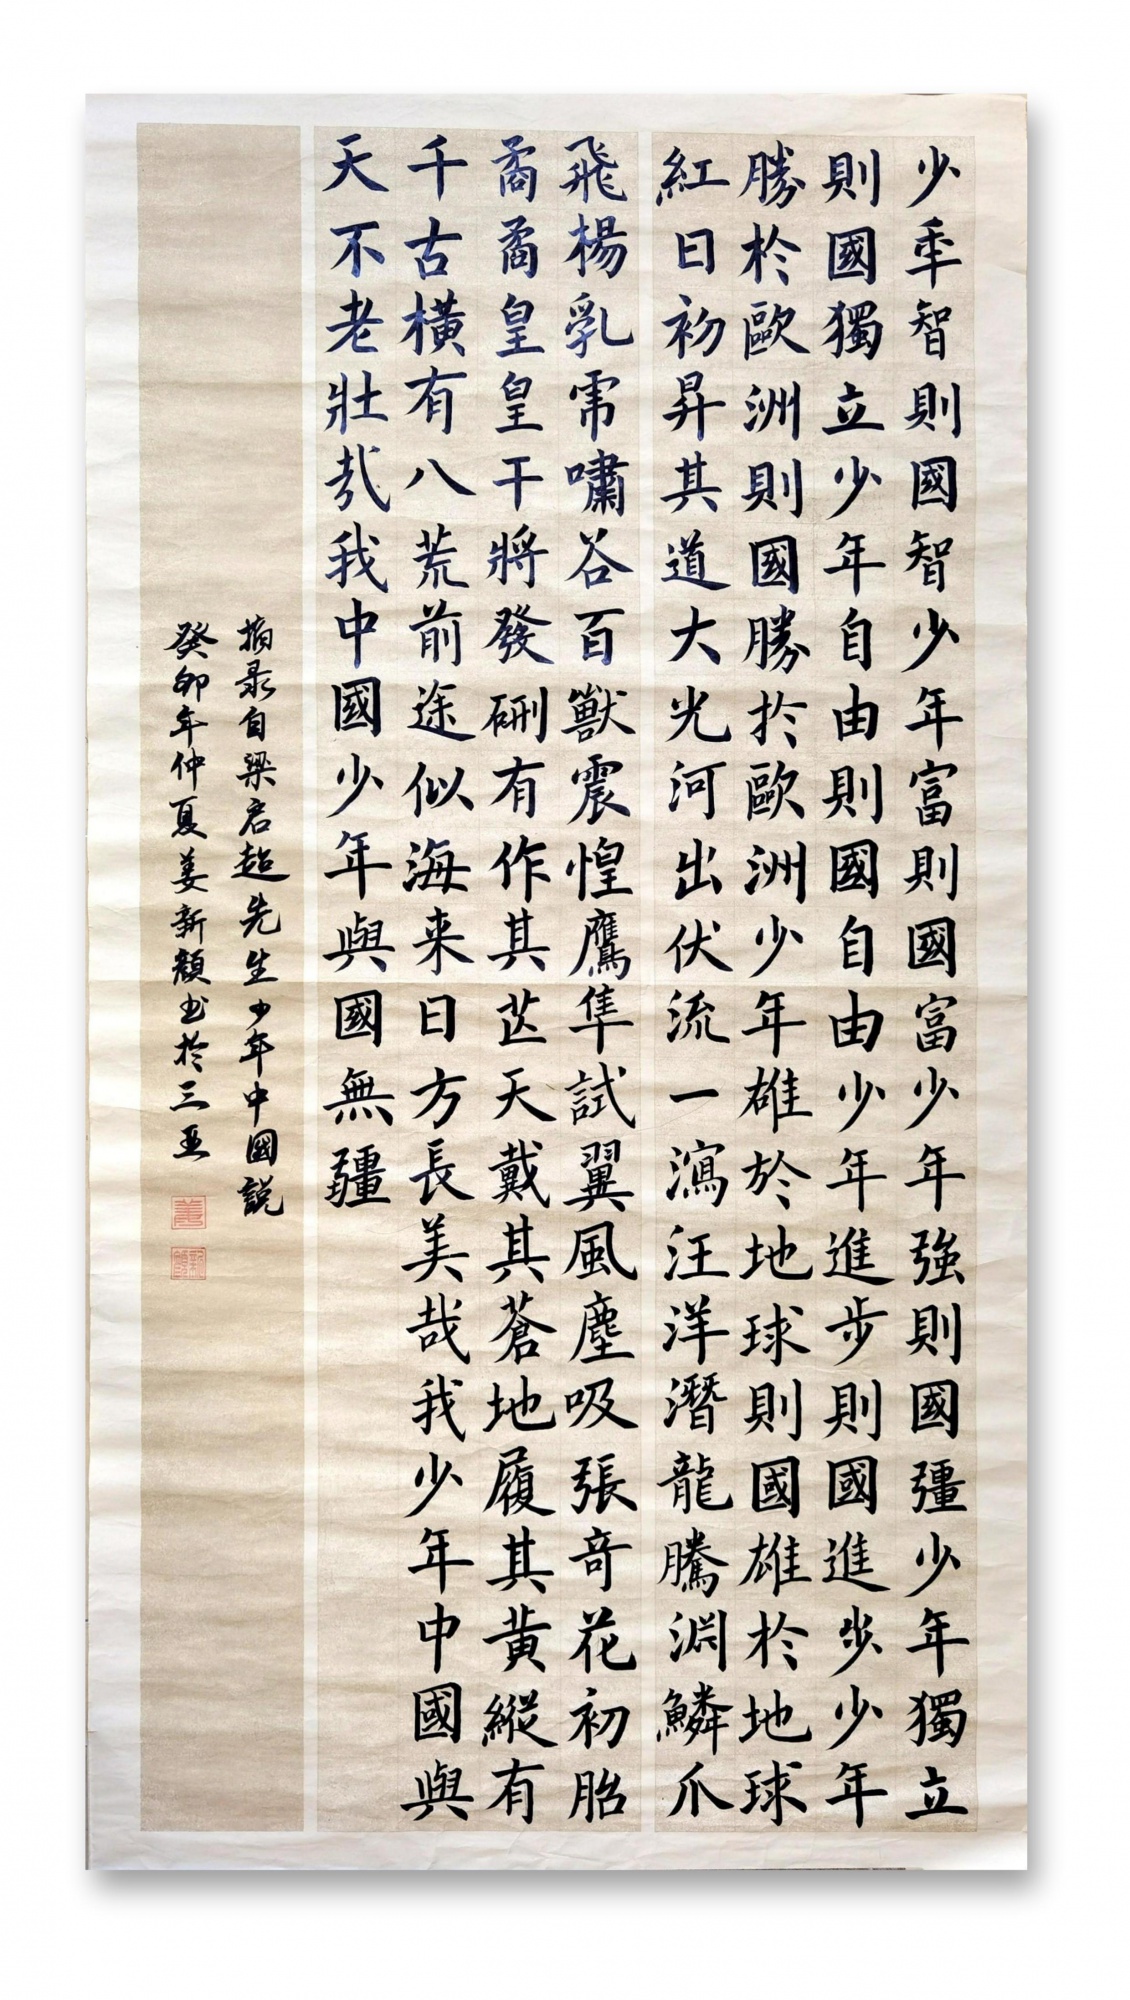 少年智則國智少年富則國富少年強則國彊少年獨立
則國獨立少年自由則國自由少年進步則國進步少年
勝於歐洲則國勝於歐洲少年雄於地球則國雄於地球
紅日初昇其道大光河出伏流一瀉汪洋潛龍騰淵鱗爪
飛楊乳虎嘯谷百獸震惶鷹隼試翼風塵吸張奇花初胎
矞矞皇皇干將發硎有作其芒天戴其蒼地履其黃縱有
千古橫有八荒前途似海来日方長美哉我少年中國與
天不老壯哉我中國少年與國無疆
摘录自梁启超先生少年中國説
癸卯年仲夏姜新顏书於三亚
姜
新顏